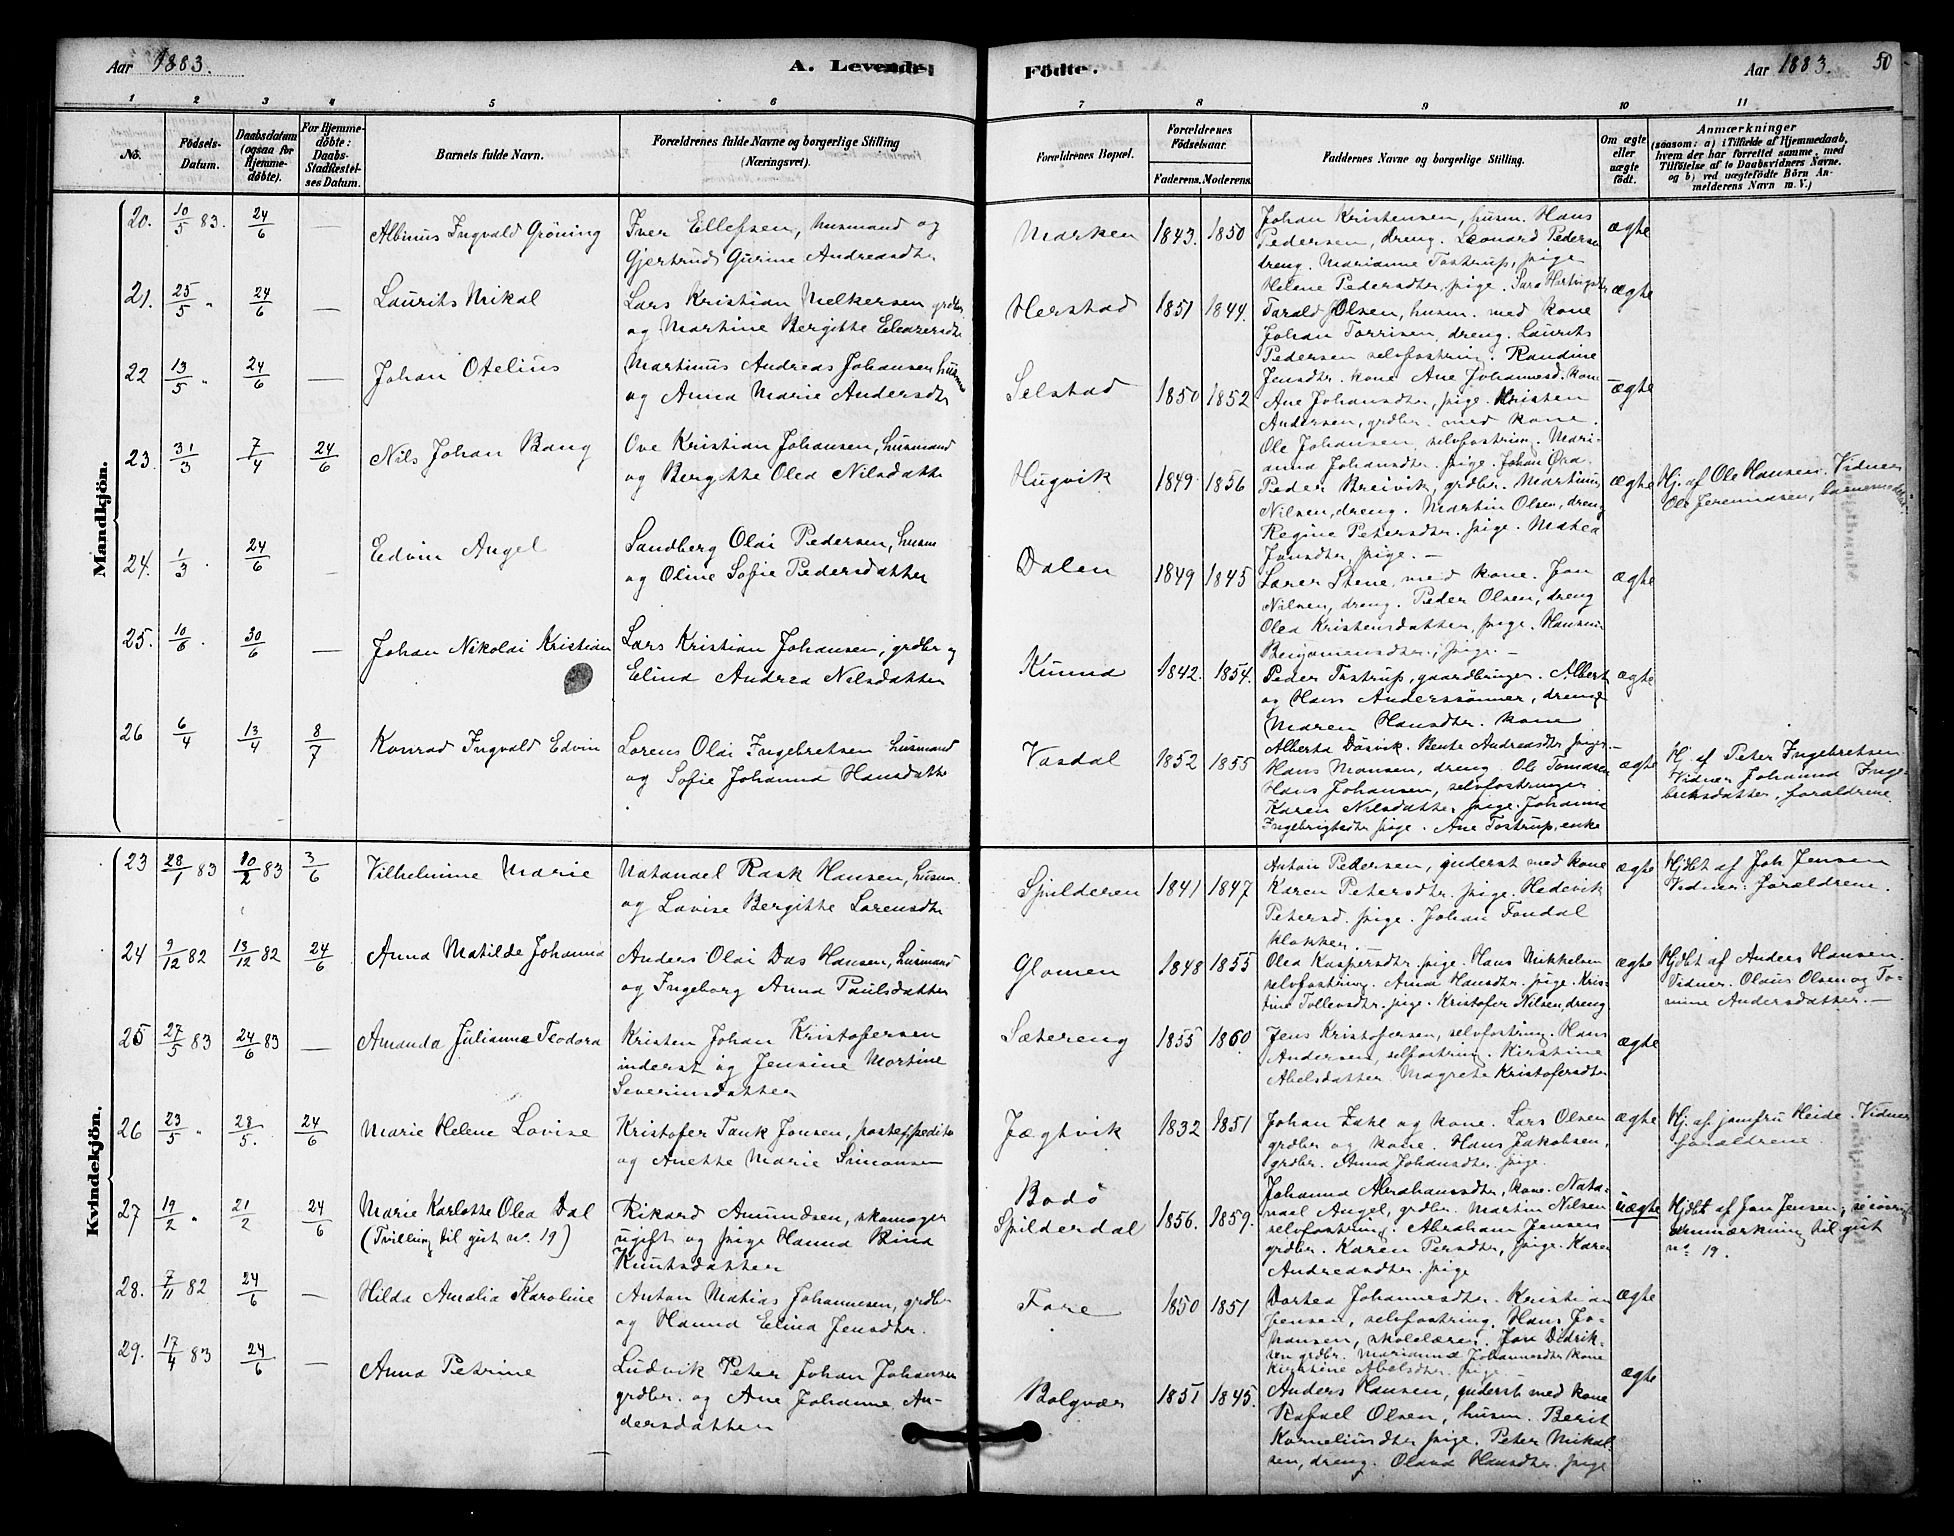 Aar 1883.
A. Levende
Födte.
Aar 1883.
50
1 2 3 4 5 6 7 8 9 10 11
No.
Födsels-
Datum.
Daabsdatum
(ogsaa for
Hjemme-
döbte).
For Hjemme-
döbte:
Daabs-
Stadfæstel-
ses Datum.
Barnets fulde Navn.
Forældrenes fulde Navne og borgerlige Stilling
(Næringsvei).
Forældrenes Bopæl.
Forældrenes
Födselsaar.
Faderens. Moderens.
Faddernes Navne og borgerlige Stilling.
Om ægte
eller
uægte
födt.
Anmærkninger
(saasom: a) i Tilfælde af Hjemmedaab,
hvem der har forrettet samme, med
Tilföielse af to Daabsvidners Navne.
og b) ved uægtefödte Börn An-
melderens Navn m. V.)
Mandkjön.
20. 10/5 83. 24/6 — Albinus Ingvald Gröning
Iver Ellefsen, husmand og
Gjertrud Gurine Andreasdtr
Marken 1843. 1850
Johan Kristensen, husm. Hans
Pedersen, dreng. Leonard Pedersen
dreng. Marianne Tostrup, pige
Helene Pedersdtr, pige.
ægte
21. 25/5 " 24/6 — Laurits Mikal
Lars Kristian Melkersen grdbr
og Martine Bergitte Eleazersdtr
Herstad 1851 1844.
Tarald Olsen, husm. med kone
Johan Torrisen, dreng. Laurits
Pedersen selvfostring. Randine
Jensdtr. kone Ane Johannesd. kone
ægte
22 13/5 " 24/6 — Johan Otelius
Martinus Andreas Johansen husm
og Anna Marie Andersdtr
Selstad 1850 1852
Ane Johansdtr, pige. Kristen
Andersen, grdbr. med kone.
Ole Johansen, selvfostring. Mari-
anna Johansdtr. pige.
ægte
23. 31/3 7/4 24/6 Nils Johan Bang
Ove Kristian Johansen, husmand
og Bergitte Olea Nilsdatter
Hugvik 1849 1856
Peder Breivik, grdbr. Martinus
Nilsen, dreng. Martin Olsen, dreng
Regine Petersdtr. pige. Matea
Jensdtr, pige. —
ægte
Hj. af Ole Hansen. Vidner
Ole Jeremiasen,
24. 1/3 24/6 — Edvin Angel
Sandberg Olai Pedersen, husm
og Oline Sofie Pedersdatter
Dalen 1849 1845
Lærer Stene, med kone. Jon
Nilsen, dreng. Peder Olsen, dreng
Olea Kristensdatter, pige.
Benjamensdtr. pige. —
ægte
25. 10/6 30/6 — Johan Nikolai Kristian
Lars Kristian Johansen, grdbr og
Elina Andrea Nilsdatter
Kunna 1842. 1854.
Peder Tostrup, gaardbruger. Albert
og Hans Anderssönner, drenge
Maren Hansdtr. kone
Alberta Dösvik. Bente Andreasdtr piger. —
ægte
26 6/4 13/4 8/7 Konrad Ingvald Edvin
Lorens Olai Ingebretsen husmand
og Sofie Johanna Hansdatter
Vasdal 1852 1855
Hans Monsen, dreng. Ole Tomasen
Hans Johansen, selvfostringer
Karen Nilsdatter, pige. Johanna
Ingebrigtsdtr pige. Ane Tostrup, enke
ægte
Hj. af Peter Ingebretsen
Vidner Johanna Inge-
bretsdatter, forældrene.
Kvindekjön.
23 28/1 83 10/2 83 3/6 Vilhelmine Marie
Natanael Rask Hansen, husm.
og Lovise Bergitte Lorensdtr
Spilderen 1841 1847
Anton Pedersen, inderst med kone
Karen Petersdtr. pige. Hedevik
Petersd. pige. Johan Fondal
klokker.
ægte
Hjdbt af Joh Jensen
Vidner. Forældrene.
24 9/12 82 13/12 82 24/6 Anna Matilde Johanna
Anders Olai Das Hansen, husmand
og Ingeborg Anna Paulsdatter
Glomen 1848 1855
Olea Kaspersdtr. pige. Hans Mikkelsen
selvfostring. Anna Hansdtr. pige. Kris-
tina Tollevsdtr. pige. Kristofer Nilsen, dreng
ægte
Hjdbt af Anders Hansen.
Vidner. Olaus Olsen og To-
mine Andersdatter. —
25 27/5 83 24/6 83 — Amanda Julianna Teodora
Kristen Johan Kristofersen
inderst og Jensine Martine
Severinsdatter
Sætereng 1855 1860
Jens Kristofersen, selvfostring. Hans
Andersen, selfostring. Kirstine
Abelsdatter. Magrete Kristofersdtr
ægte
26 23/5 " 28/5. 24/6 Marie Helene Lovise
Kristofer Tank Jensen, postexpeditör
og Anette Marie Simonsen
Jægtvik 1832 1851
Johan Zahl og kone. Lars Olsen
grdbr og kone. Hans Jakobsen,
grdbr. Anna Johansdtr. pige.
ægte
Hj. af jomfru Heide. Vidner
forældrene
27 19/2 " 21/2 24/6 Marie Karlotte Olea Dal
(Tvilling til gut no. 19)
Rikard Amundsen, skomager
ugift og pige Hanna Birna
Knutsdatter
Bodö
Spilderdal 1856. 1859.
Johanna Abrahamsdtr, kone. Nata-
nael Angel, grdbr. Martin Nilsen
selvfostring. Abraham Jensen
grdbr. Karen Persdtr, pige. Karen
Andreasdtr. pige
uægte
Hjdbt af Jon Jensen,
anmærkning til gut
no 19.
28. 7/11 82 24/6 — Hilda Amalia Karoline
Anton Matias Johannesen, grdbr
og Hanna Elina Jensdtr.
Fore 1850 1851
Dortea Johannesdtr. Kristian
Jensen, selvfostring. Hans Jo-
hansen, skolelærer. Jon Didrik-
sen grdbr. Marianna Johannesdtr kone
Kirstine Abelsdtr. pige —
ægte
29. 17/4 83 24/6 — Anna Petrine
Ludvik Peter Johan Johansen
grdbr. og Ane Johanna An-
dersdatter
Bolgvær 1851 1845.
Anders Hansen, inderst med kone
Rafael Olsen, husm. Berit
Korneliusdtr pige. Peter Mikal-
sen, dreng. Olava Hansdtr. pige
ægte